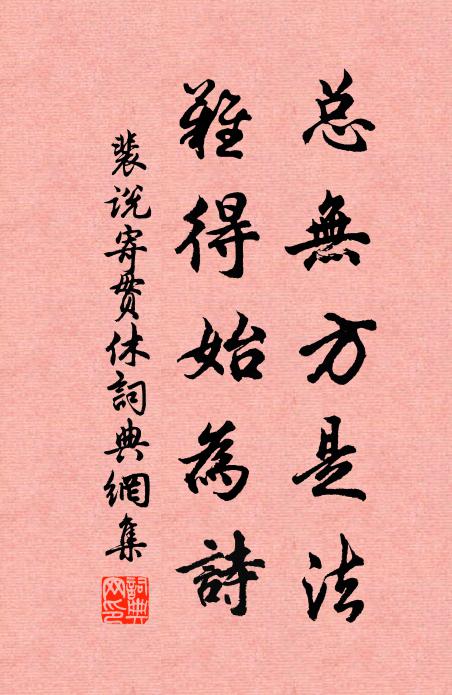 总無方是法
難得始為詩
裴说寄贯休詞典網集
詞典網印